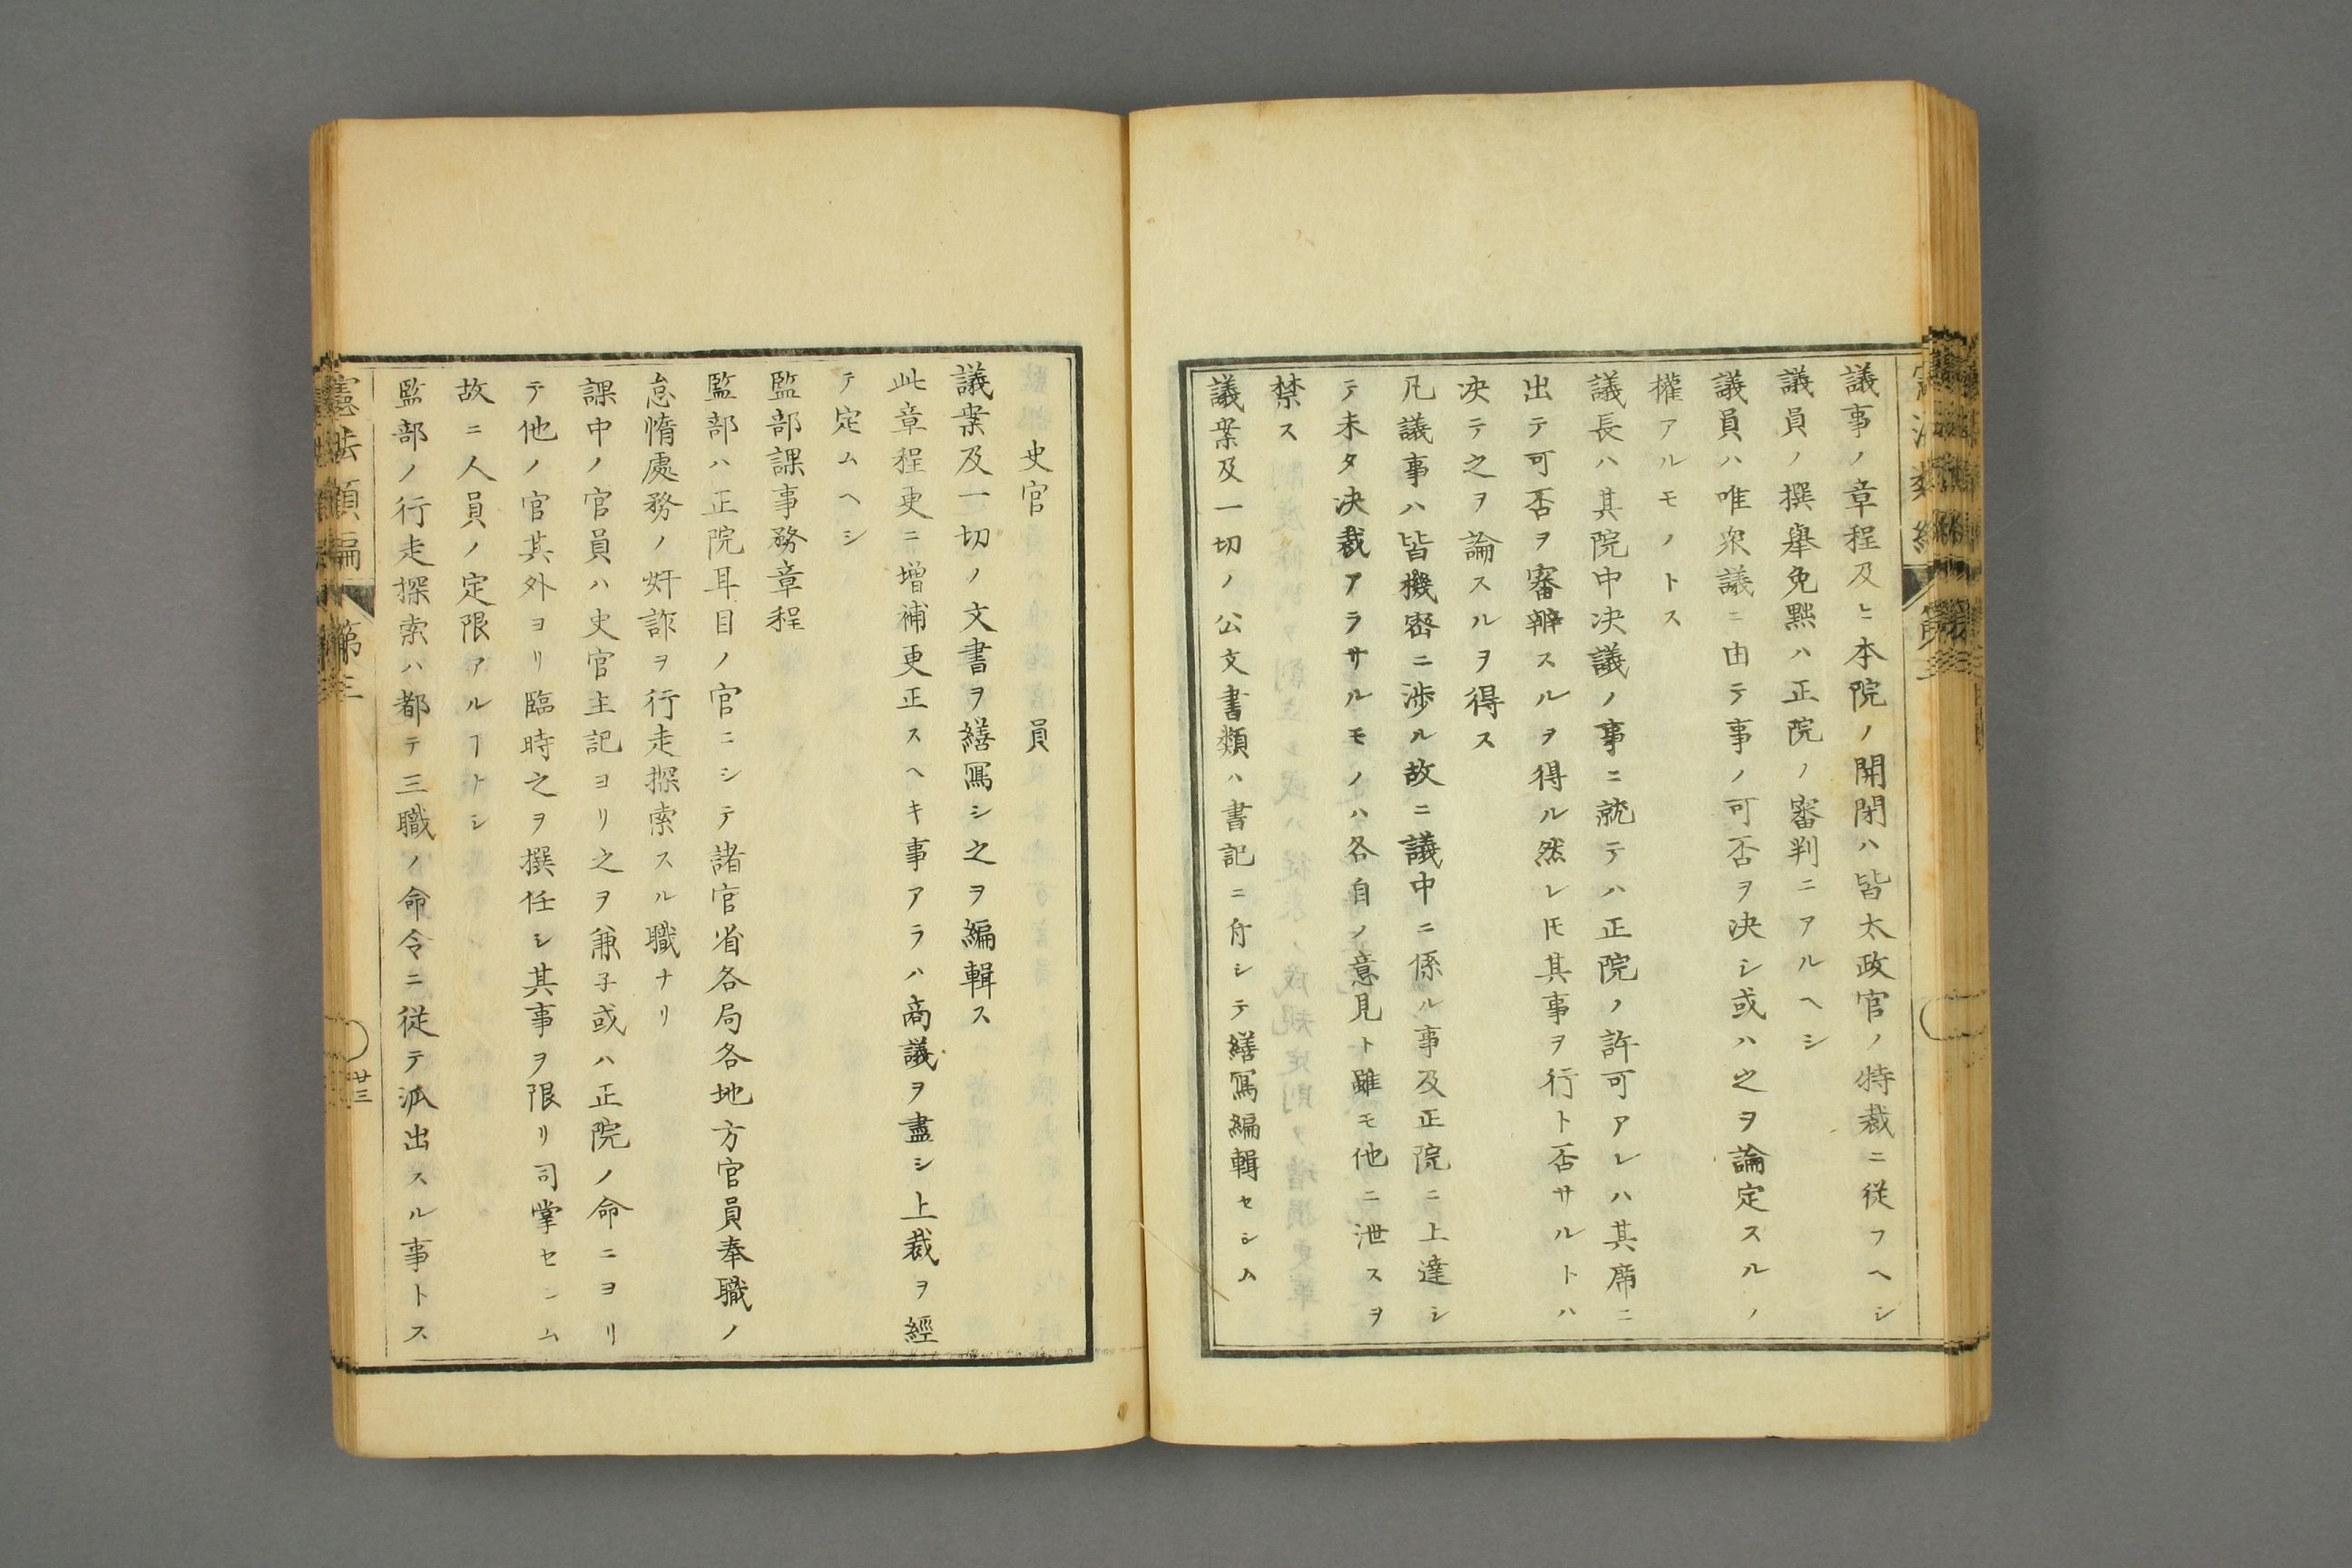 議事ノ章程及ヒ本院ノ開閉ハ皆太政官ノ特裁ニ従フヘシ
議員ノ撰擧免黜ハ正院ノ審判ニアルヘシ
議員ハ唯衆議ニ由テ事ノ可否ヲ决シ或ハ之ヲ論定スルノ
權アルモノトス
議長ハ其院中决議ノ事ニ就テハ正院ノ許可アレハ其席ニ
出テ可否ヲ審辨スルヲ得ル然レ𪜈其事ヲ行ト否サルトハ
决テ之ヲ論スルヲ得ス
凡議事ハ皆機密ニ渉ル故ニ議中ニ係ル事及正院ニ上達シ
テ未タ决裁アラサルモノハ各自ノ意見ト雖モ他ニ泄スヲ
禁ス
議案及一切ノ公文書類ハ書記ニ付シテ繕寫編輯セシム
史官　員
議案及一切ノ文書ヲ繕寫シ之ヲ編輯ス
此章程更ニ増補更正スヘキ事アラハ商議ヲ盡シ上裁ヲ經
テ定ムヘシ
監部課事務章程
監部ハ正院耳目ノ官ニシテ諸官省各局各地方官員奉職ノ
怠惰處務ノ奸詐ヲ行走探索スル職ナリ
課中ノ官員ハ史官主記ヨリ之ヲ兼子或ハ正院ノ命ニヨリ
テ他ノ官其外ヨリ臨時之ヲ撰任シ其事ヲ限リ司掌セシム
故ニ人員ノ定限アルヿナシ
監部ノ行走探索ハ都テ三職ノ命令ニ従テ派出スル事トス
憲法類編　第三
廿三